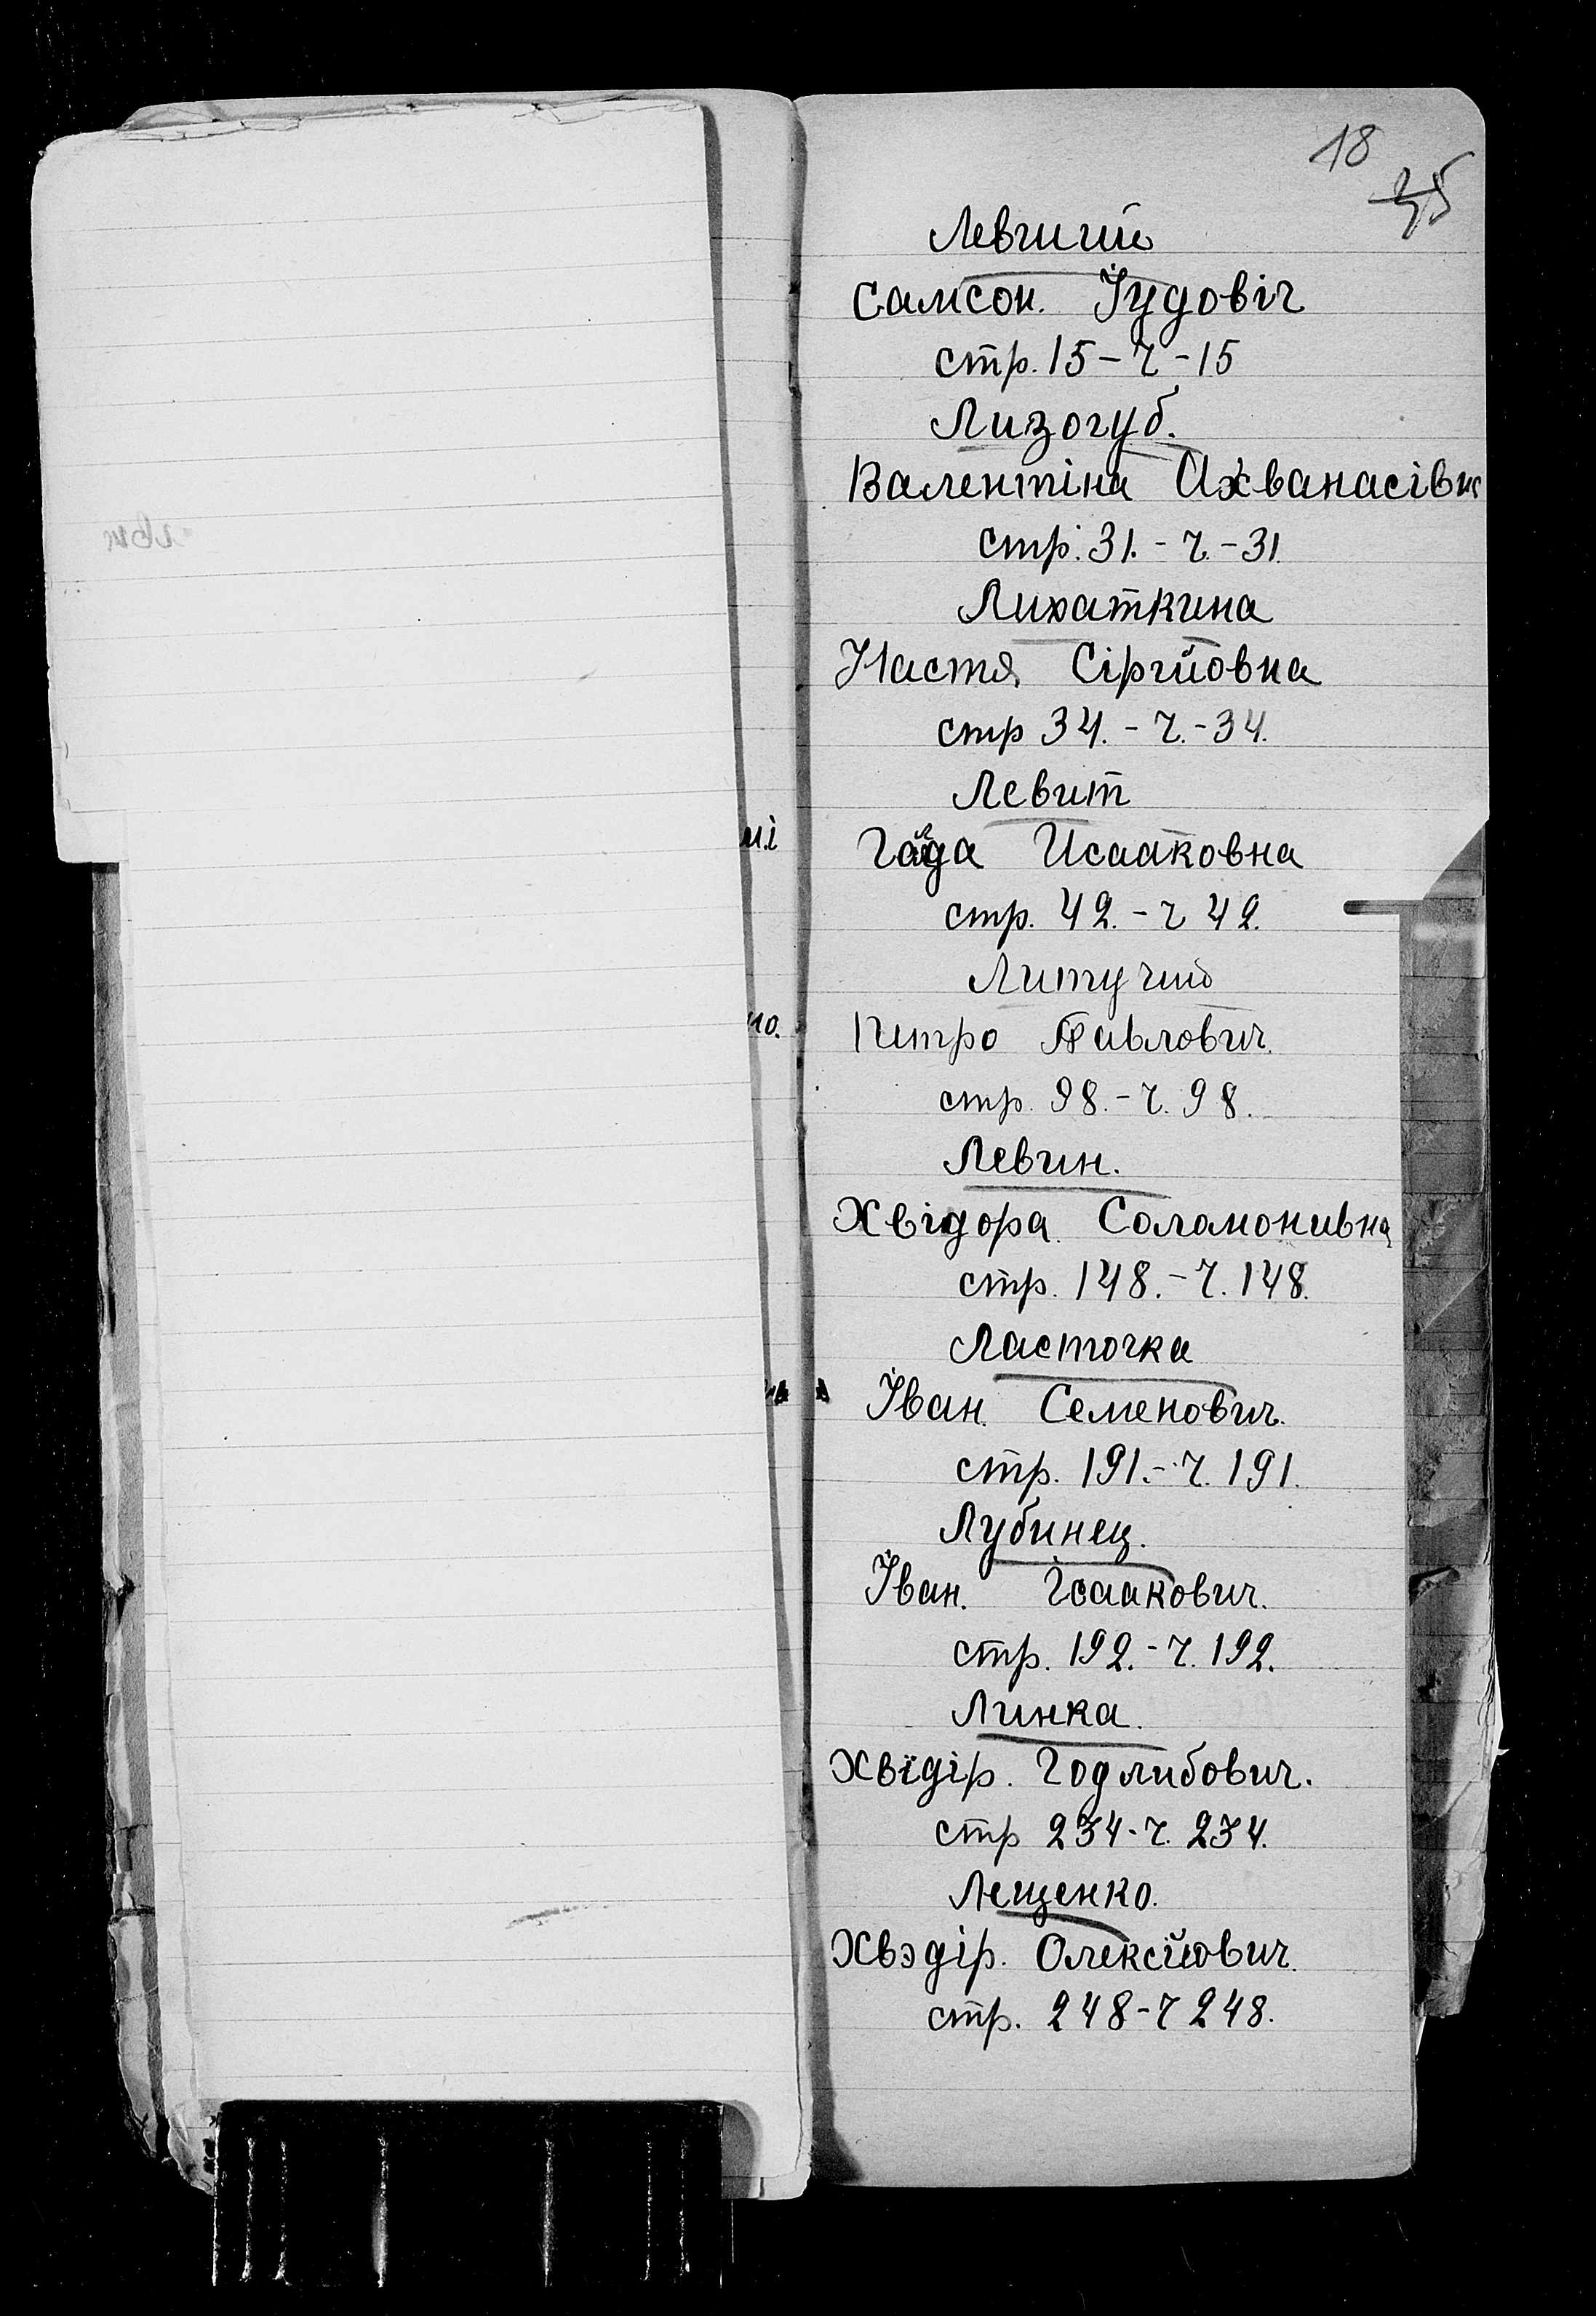 18
35
Левшиць
Самсон. Їудовіч
стр. 15 – ч – 15
Лизогуб.
Валентіна Ахванасівн
стр. 31. – ч. – 31.
Лихаткина
Настя, Сіргійовна
стр 34. – ч. – 34.
Левит
Исааковна
стр. 42. – ч 42.
Литучий
Питро Павлович.
стр. 98. – ч. 98.
Левин.
Хвідора. Соломонивна
стр. 148. – ч. 148.
Ласточка
Їван. Семенович.
стр. 191. – ч. 191.
Лубинец.
Їван. Їсаакович.
стр. 192. – ч. 192.
Линка.
Хвідір. Годлибович.
стр 234 - ч. 234.
Лещенко.
Хвэдір. Олексійович.
стр. 248 – ч 248.